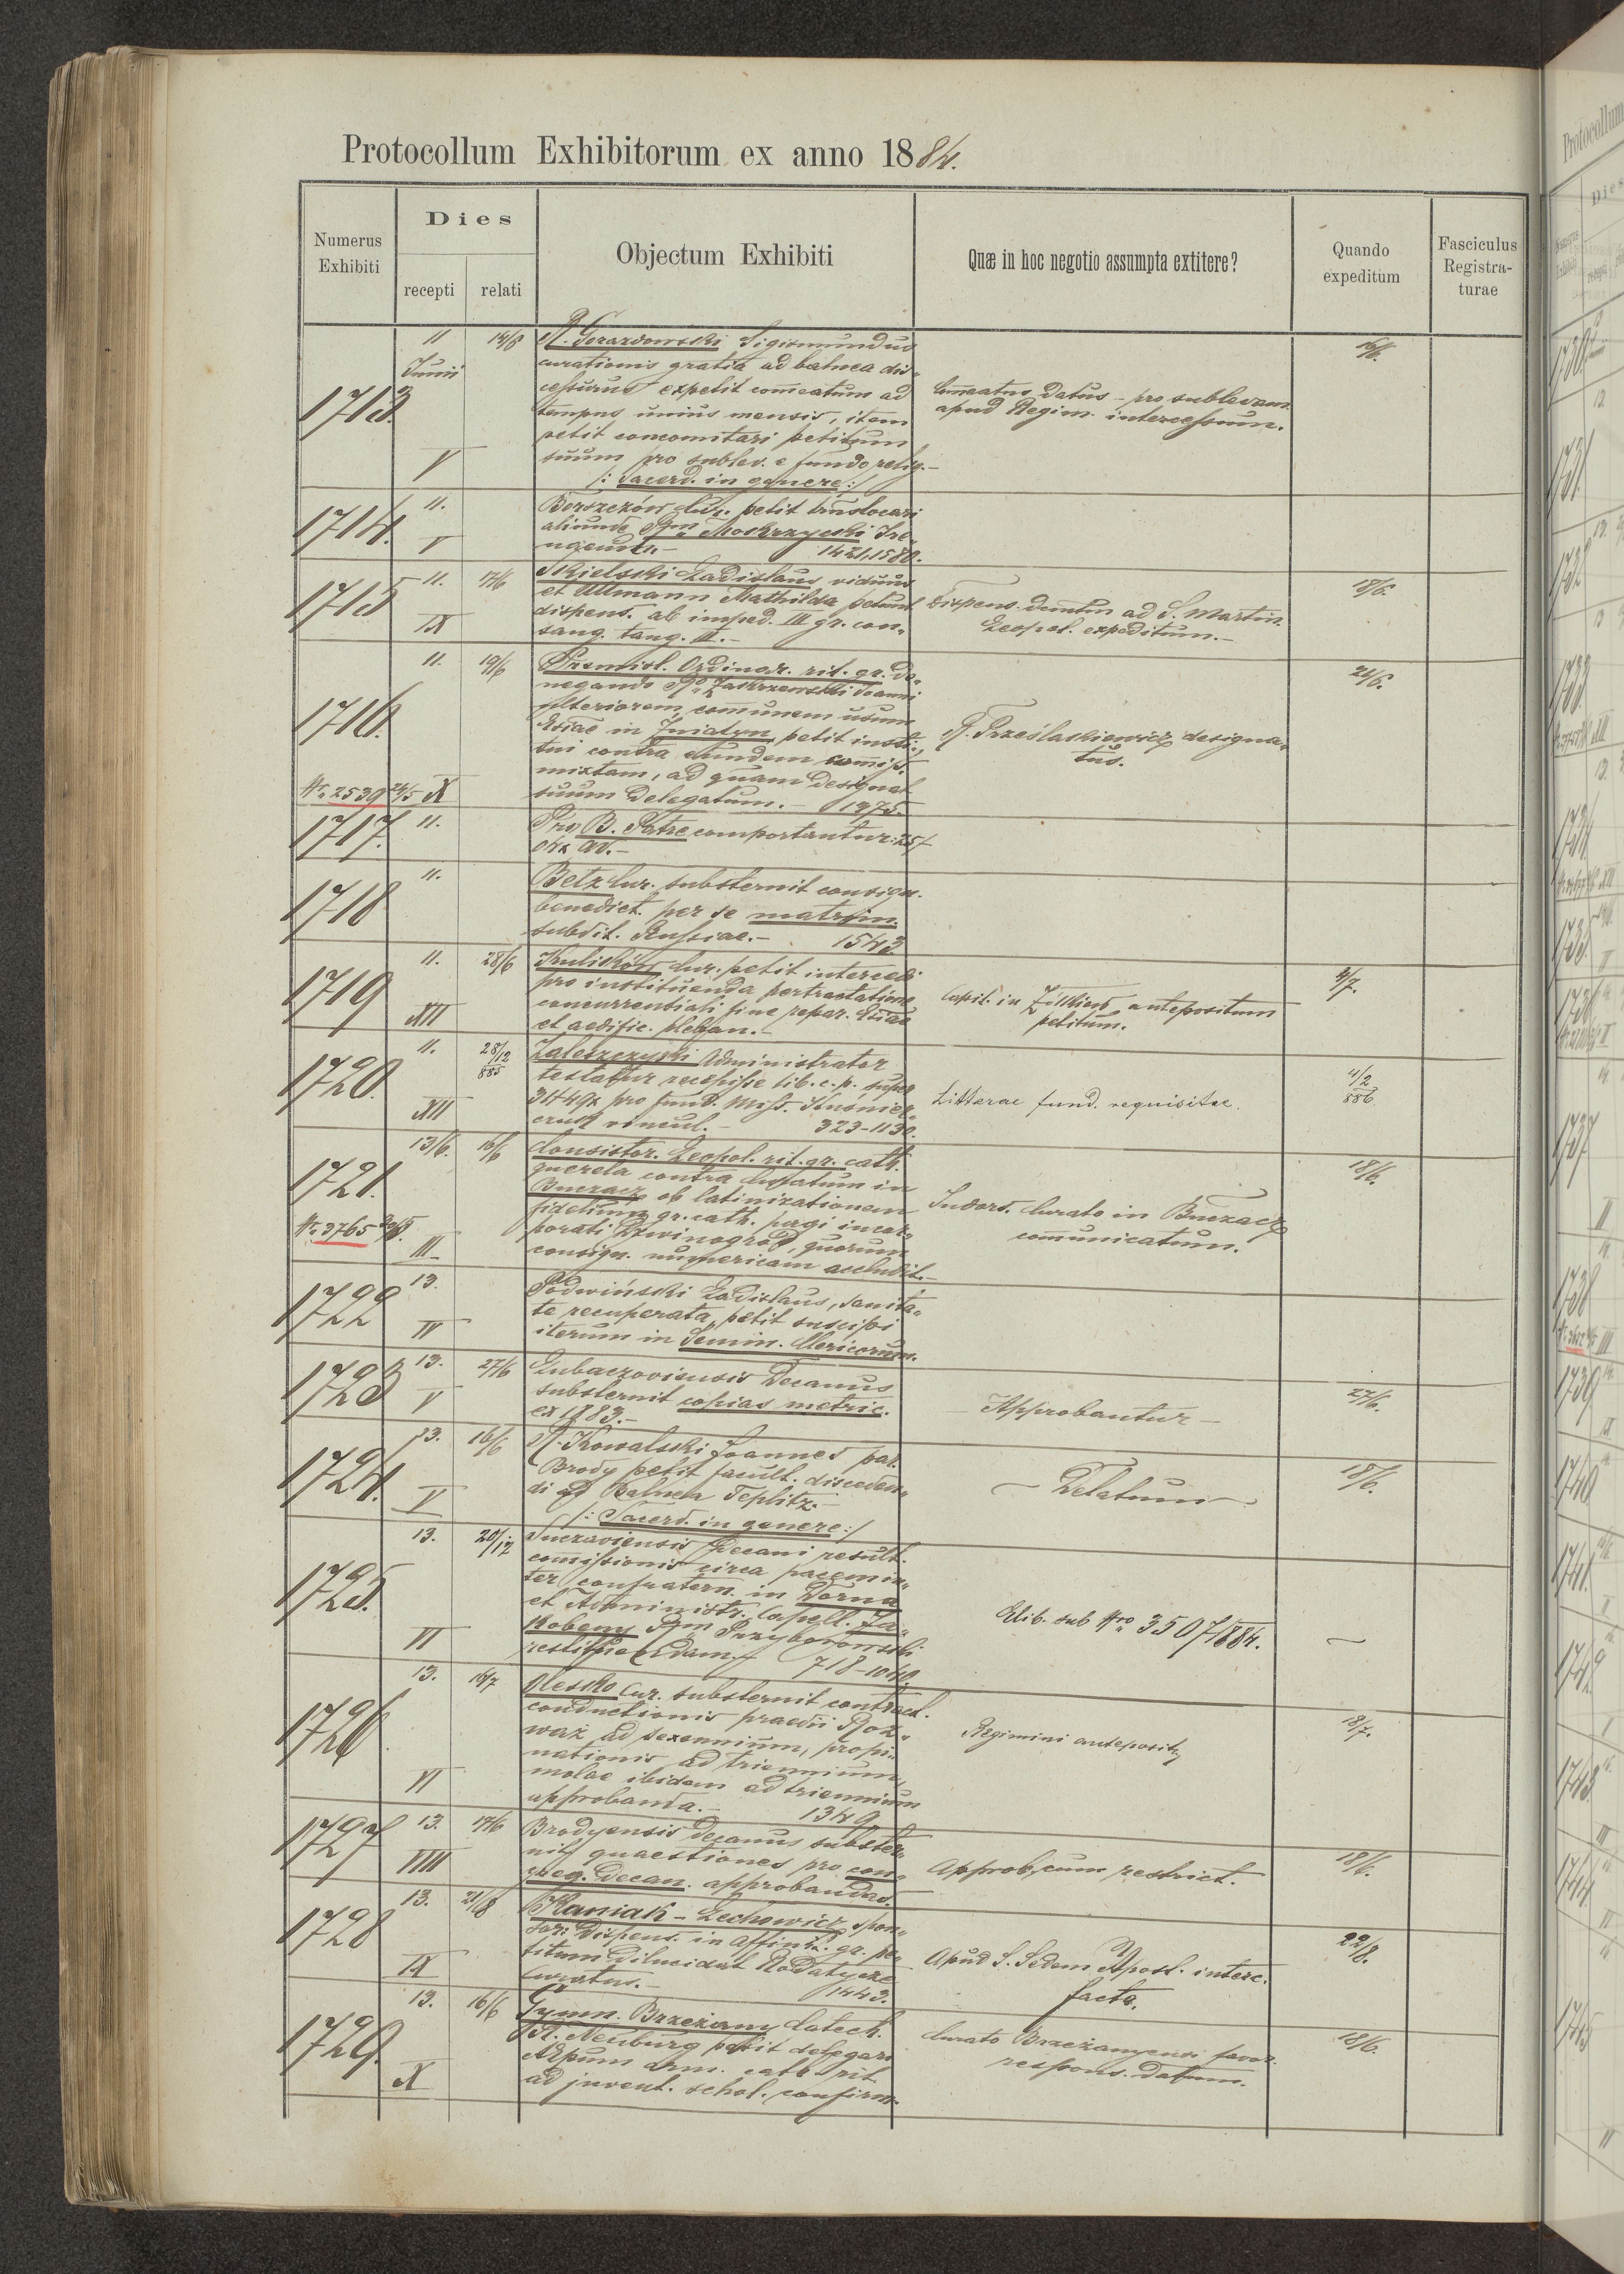 Protocollum Exhibitorum ex anno 1884.
Numerus Exhibiti
Dies
recepti
relati
Objectum Exhibiti
Quæ in hoc negotio assumpta extitere?
Quando expeditum
Fasciculus Registra-
turae
1713.
11 Junii
V
R. Gorazdowski Sigismundus
curationis gratia ad balnea dis-
cessurus expetit com̄eatum ad
tempus unius mensis, item
petit concomitari petitum
suum pro sublev. e fundo relig.-
/: Sacerd. in genere :/
Com̄eatus datus - pro sublevam.
apud Regim. intercessum.
16/6.
1714.
11.
V
Borszczów Cur. petit translocari
aliunde Rm Mokrzycki
1421. 1580.
1715
11.
17/6
IX
Skielski Ladislaus viduus
et Ullmann Mathilda petunt
dispens. ab imped. III gr. con-
sang. tang. II.-
Dispens. demum ad S. Martin.
Leopol. expeditum.-
18/6.
1716.
11.
19/6
Nr. 2539 24/5 X
Premisl. Ordinar. rit. gr. de-
negando Ro Zakrzewski Joanni
ulteriorem com̄unem usum
Ecsiae in Jniatyn petit insti-
tui contra eundem com̄iss.
mixtam, ad quam designat
suum Delegatum.- 1375.
R. Prześlaskiewicz designa-
tus.
21/6.
1717.
11.
Pro B. Patre comportantur: 25 f
av.-
1718
11.
Betz Cur. substernit consign.
benedict. per se matrim.
subdit. Russiae.- 1543.
1719
11.
28/6
XII
Kulików Cur. petit intercedi
pro instituenda pertractatione
concurrentiali fine repar. Ecsiae
et aedific. pleban.-
Capit. in Żółkiew antepositum
petitum.
4/7.
1720.
11.
28/12
885
XII
Zaleszczycki Administrator
testatur recepisse lib. c. p. super
pro fund. Miss.
vincul.- 323-1130.
Litterae fund. requisitae.
4/2
886
1721.
13/6.
16/6
Nr. 3765
III
Consistor. Leopol. rit. gr. cath.
querela contra Curatum in
Buczacz ob latinizationem
fidelium gr. cath. pagi incor-
porati Dzwinogród, quorum
consign. numericam accludit.-
Indors. Curato in Buczacz
com̄unicatum.
18/6.
1722
13.
IV
Podwiński Ladislaus, sanita-
te recuperata, petit suscipi
iterum in Semin. Clericorum.
1723
13.
27/6
V
Lubaczoviensis Decanus
substernit copias metric.
ex 1883.-
Approbantur -
27/6.
1724.
13.
16/6
V
R. Kowalski Joannes par.
Brody petit facult. disceden-
di ad Balnea Teplitz.-
/: Sacerd. in genere :/
- Delatum -
18/6.
1725.
13.
20/12
VI
Suczaviensis Decani result.
com̄issionis circa pacem in-
ter confratern. in Dorna
et Administr. Capell. Ja-
kobeny Rm Przyborowski
restituendam. 718-1040.
Exib. sub Nro 3507/884.
1726
13.
16/7
VI
Olesko Cur. substernit contract.
conductionis praedii Roz-
waż ad sexennium, propi-
nationis ad triennium,
molae ibidem ad triennium
approbanda.- 1349.
Regimini anteposita
18/7.
1727
13.
17/6
VIII
Brodyensis Decanus subster-
nit quaestiones pro con-
greg. Decan. approbandas.
Approb. cum restrict.
18/6.
1728
13.
21/8
IX
Kaniak - Lechowicz spon-
sor. Dispens. in affinit. gr. pe-
titum dilucidat Rodatycze
Curatus.- 1443.
Apud S. Sedem Apost. interc.
facta.
22/8.
1729.
13.
16/6
X
Gymn. Brzeżany Catech.
R. Neuburg petit delegari
AEpum arm. cath. rit.
ad juvent. schol. confirm.
Curato Brzeżanyensi favor.
respons. datum.
18/6.